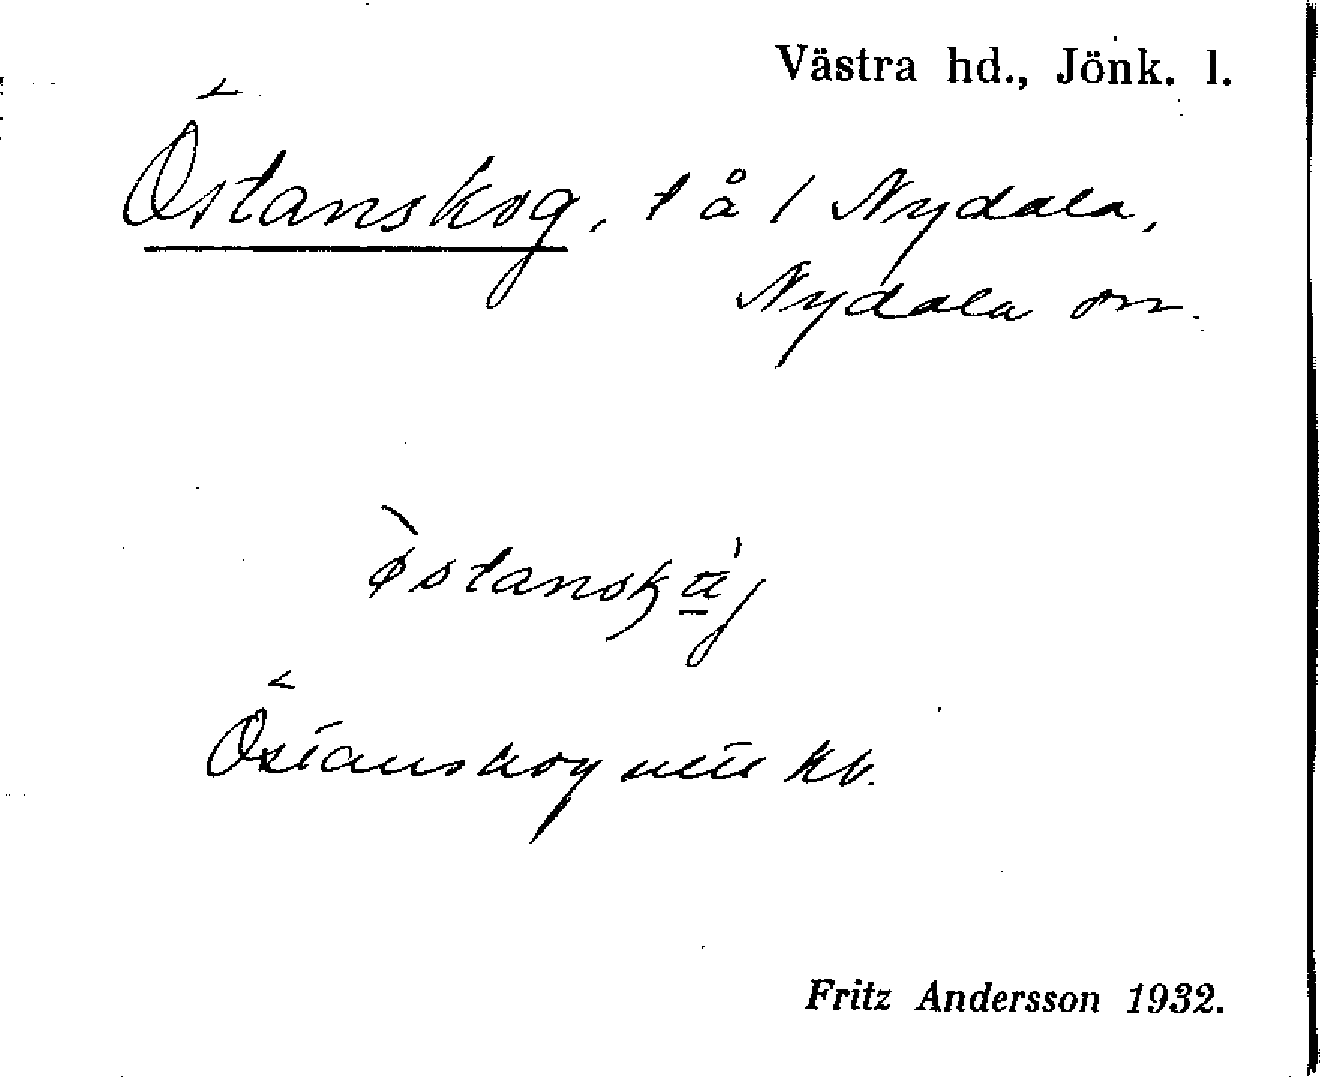 Västra hd., Jönk. l.
Östanskog, t å 1 Nydala,
Nydala sn.
Östanskog
kb.
Fritz Andersson 1932.